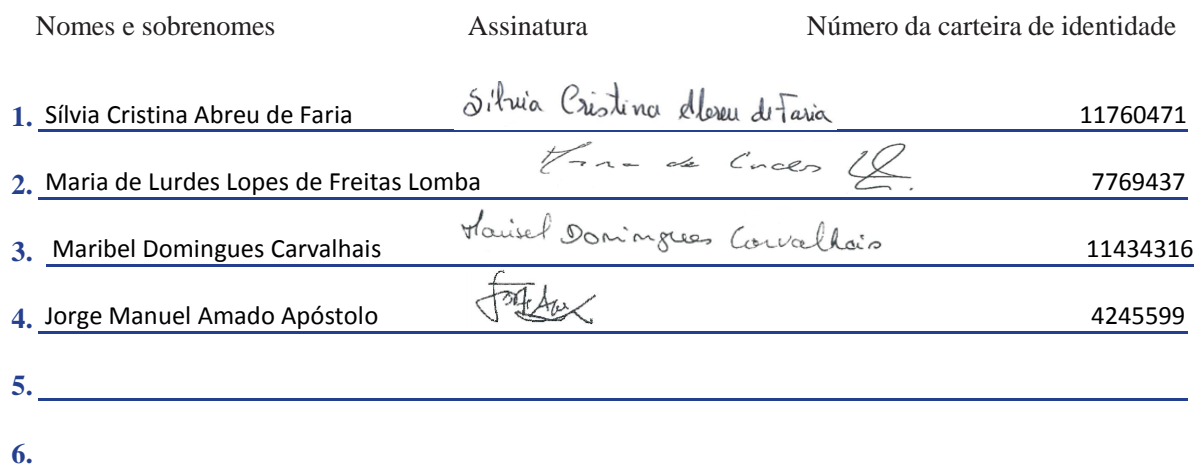 Nomes e sobrenomes Assinatura Número da carteira de identidade
1. Sílvia Cristina Abreu de Faria Sílvia Cristina Abreu de Faria 11760471
2. Maria de Lurdes Lopes de Freitas Lomba Maria de Lurdes 7769437
3. Maribel Domingues Carvalhais Maribel Domingues Carvalhais 11434316
4. Jorge Manuel Amado Apóstolo 4245599
5.
6.